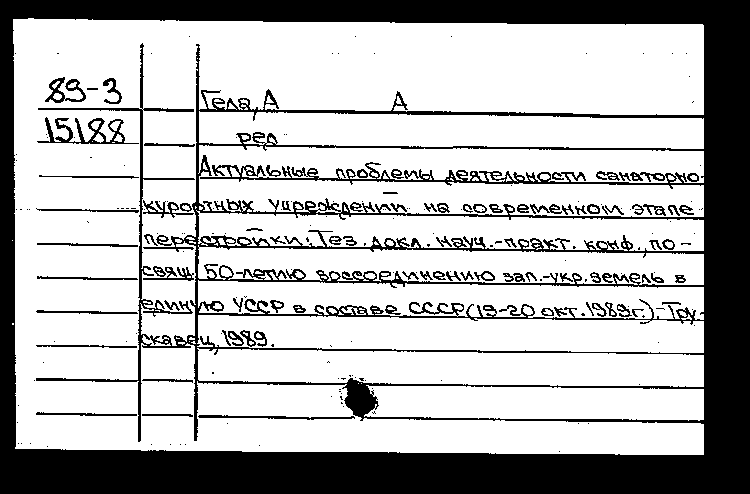 89-3 Гела, А А
15188 ред
Актуальные проблемы деятельности санаторно-
курортных учреждений на современном этапе
перестройки: Тез. докл. науч.-практ. конф., по-
свящ. 50-летию воссоединению зап.-укр. земель в
единую УССР в составе СССР (19-20 окт. 1989г.). Тру-
скавец, 1989.